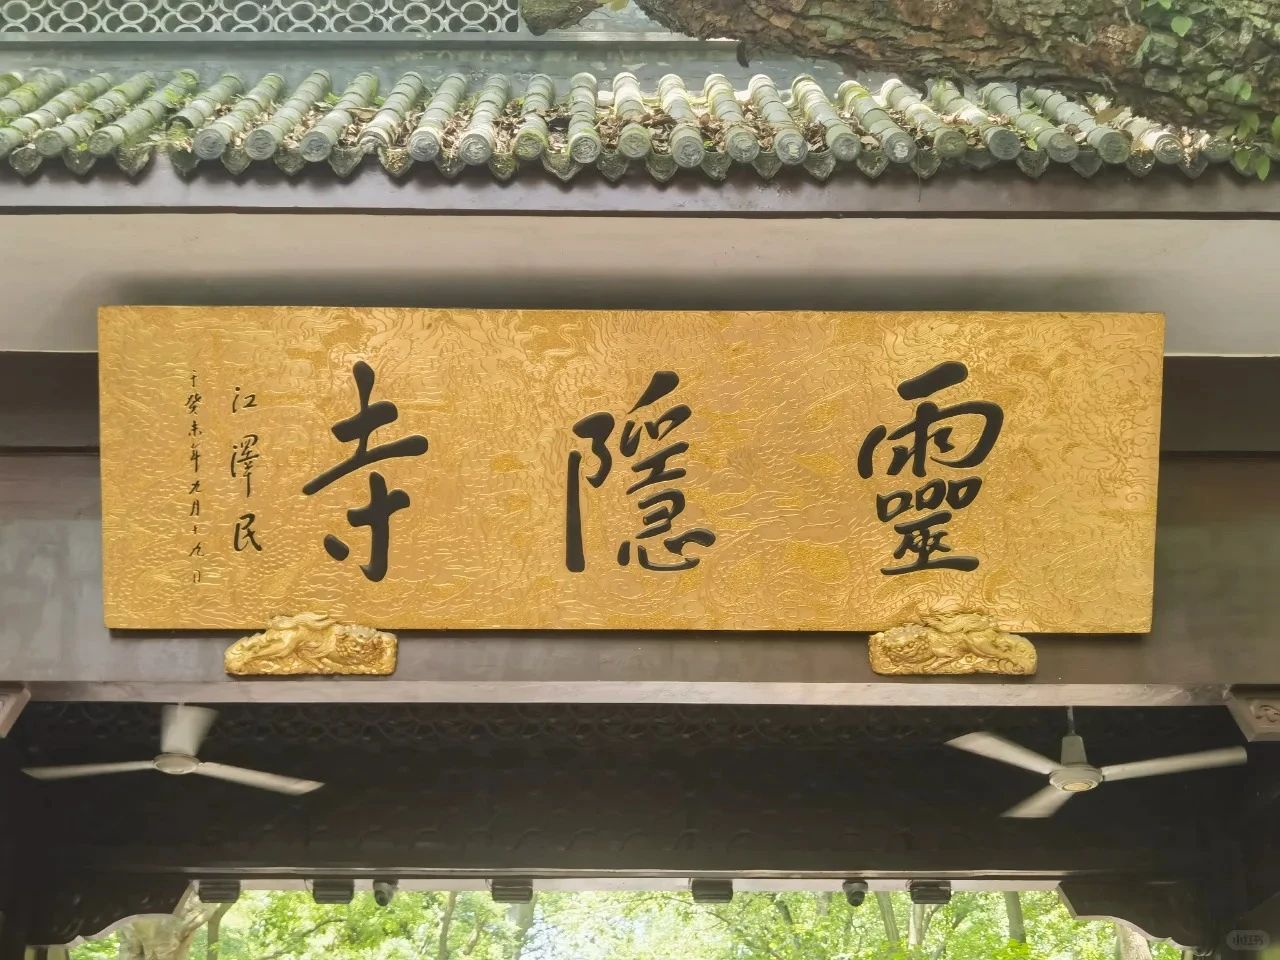 靈隱寺
江澤民
于癸未年九月十九日
小红书